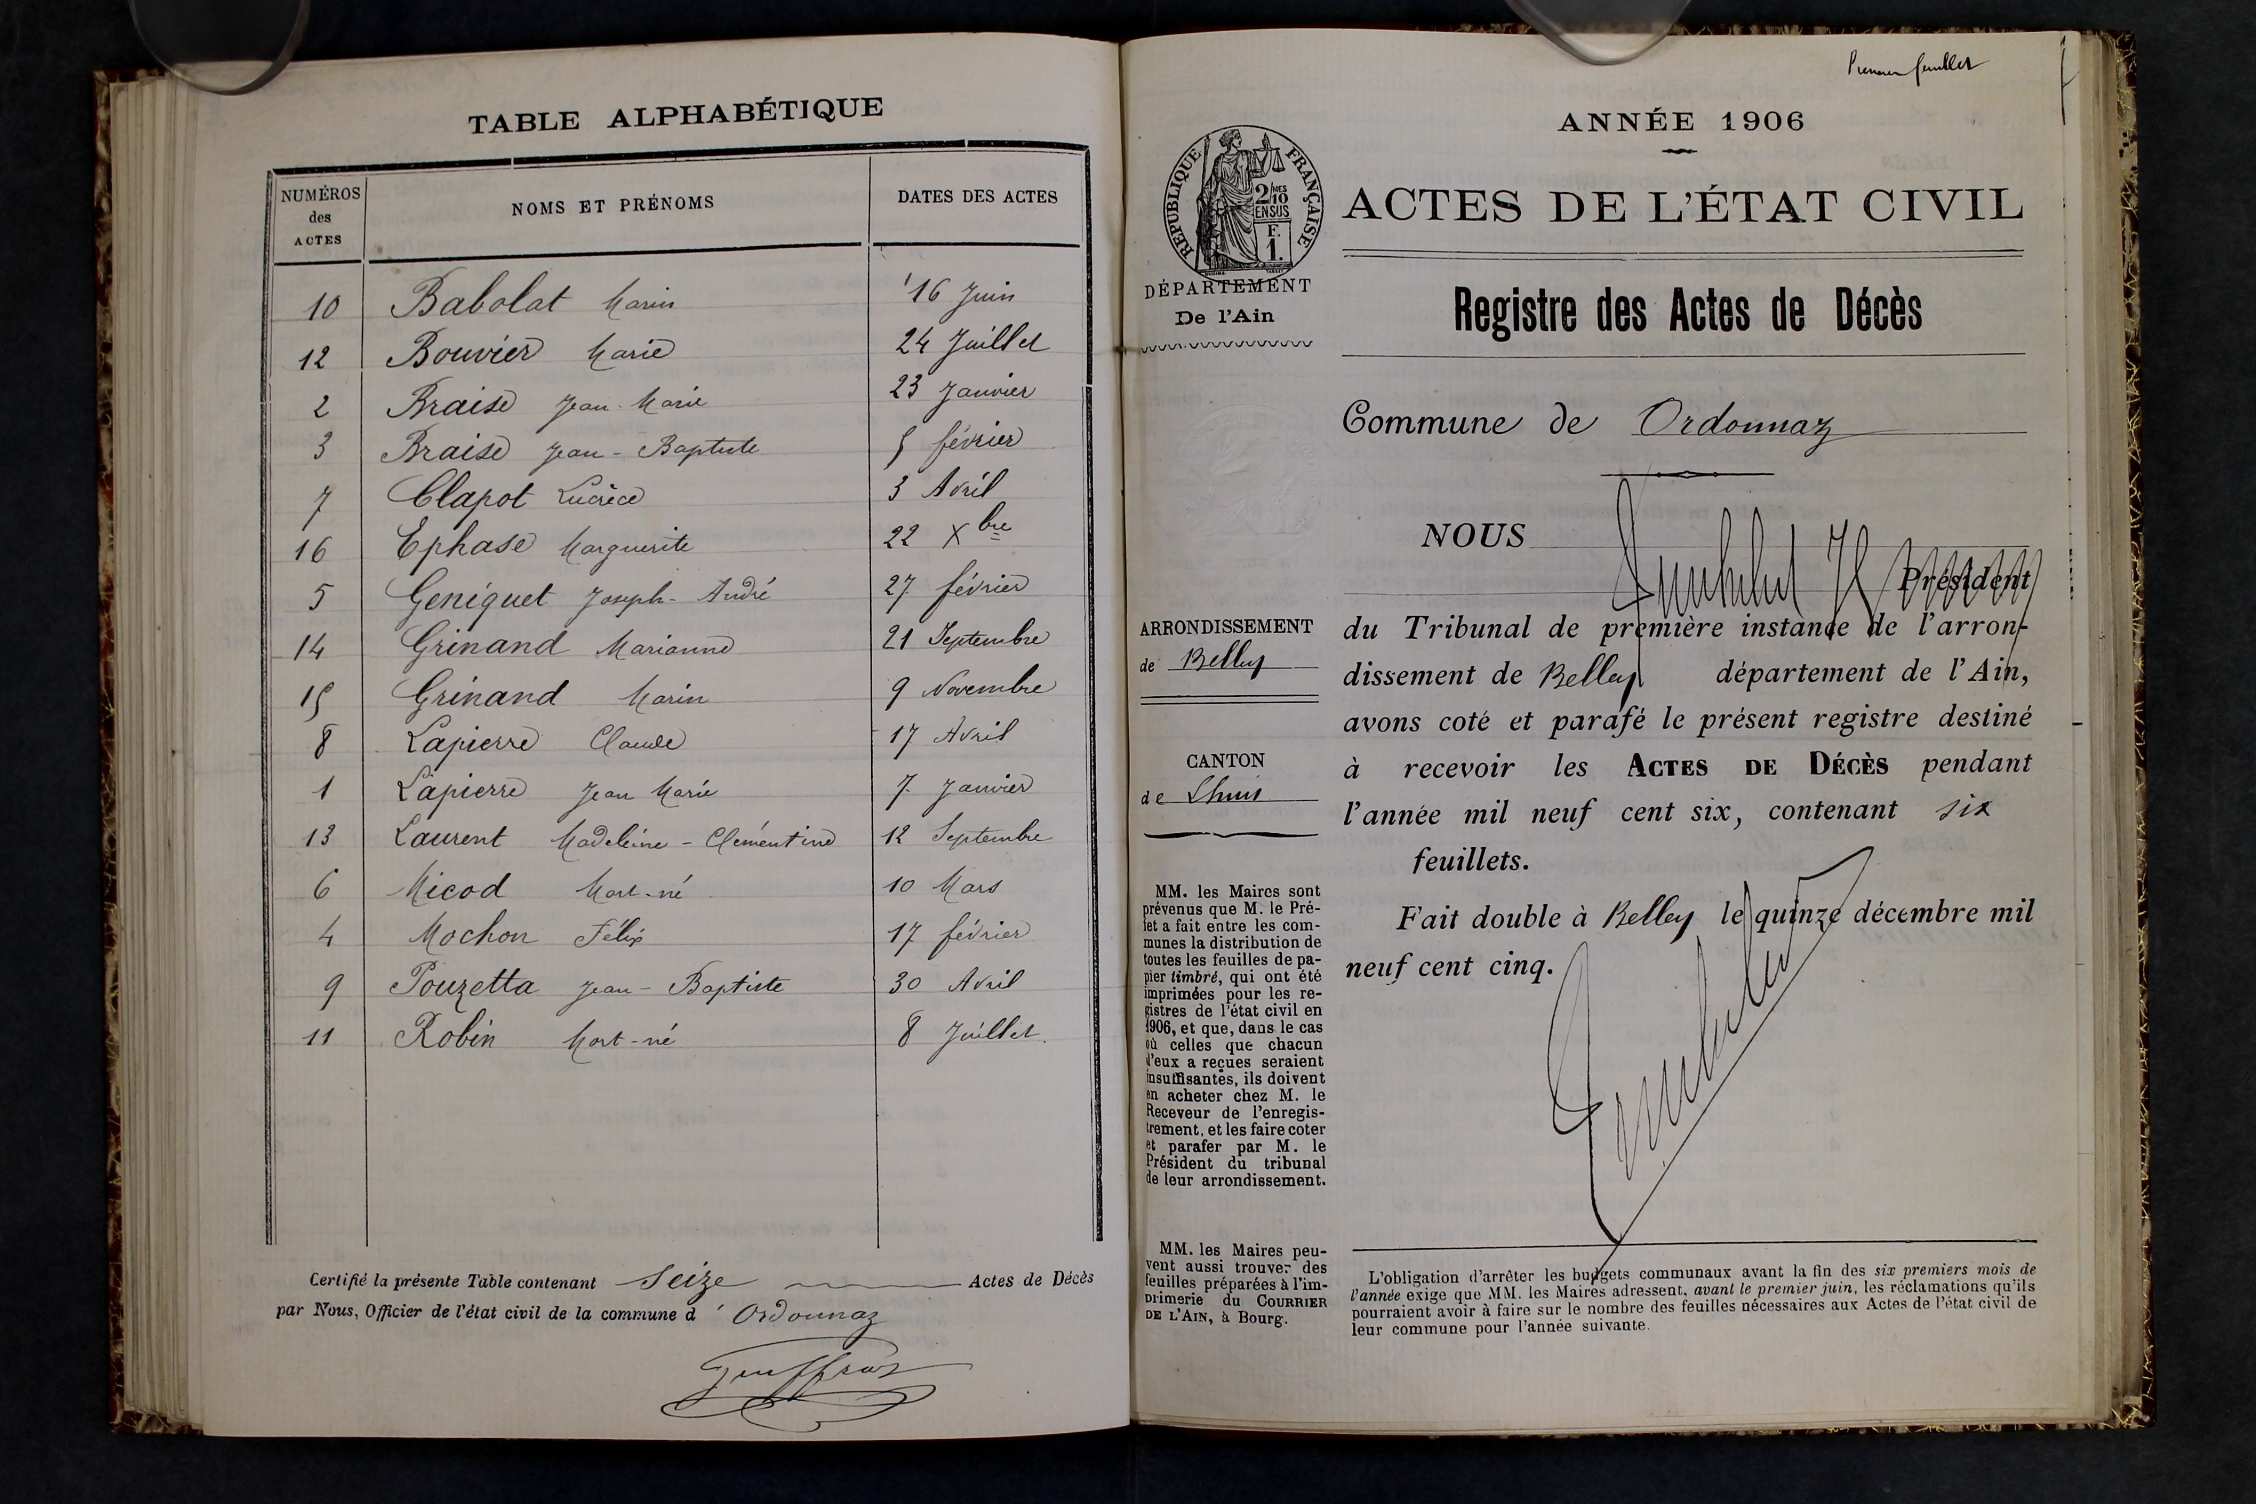 TABLE ALPHABÉTIQUE
NUMÉROS des ACTES NOMS ET PRÉNOMS DATES DES ACTES
10 Babolat Marin 16 Juin
12 Bouvier Marie 24 Juillet
2 Braise Jean-Marie 23 Janvier
3 Braise Jean-Baptiste 5 février
7 Clapot Lucrèce 3 Avril
16 Ephase Marguerite 22 Xbre
5 Geniquet Joseph-André 27 février
14 Grinand Marianne 21 Septembre
15 Grinand Marin 9 Novembre
8 Lapierre Claude 17 Avril
1 Lapierre Jean Marie 7 Janvier
13 Laurent Madeleine-Clémentine 12 Septembre
6 Micod Mort-né 10 Mars
4 Mochon Félix 17 février
9 Pouzetta Jean-Baptiste 30 Avril
11 Robin Mort-né 8 Juillet.
Certifié la présente Table contenant Seize Actes de Décès
par Nous, Officier de l'état civil de la commune d' Ordonnaz
Premier feuillet
ANNÉE 1906
RÉPUBLIQUE FRANÇAISE
2/10 MES
EN SUS
F.
1.
ACTES DE L'ÉTAT CIVIL
DÉPARTEMENT
De l'Ain
Registre des Actes de Décès
Commune de Ordonnaz
NOUS
Président
ARRONDISSEMENT
de Belley
du Tribunal de première instance de l'arron-
dissement de Belley département de l'Ain,
avons coté et parafé le présent registre destiné
CANTON
de Lhuis
à recevoir les ACTES DE DÉCÈS pendant
l'année mil neuf cent six, contenant six
feuillets.
Fait double à Belley le quinze décembre mil
neuf cent cinq.
MM. les Maires sont
prévenus que M. le Pré-
fet a fait entre les com-
munes la distribution de
toutes les feuilles de pa-
pier timbré, qui ont été
imprimées pour les re-
gistres de l'état civil en
1906, et que, dans le cas
où celles que chacun
d'eux a reçues seraient
insuffisantes, ils doivent
en acheter chez M. le
Receveur de l'enregis-
trement, et les faire coter
et parafer par M. le
Président du tribunal
de leur arrondissement.
MM. les Maires peu-
vent aussi trouver des
feuilles préparées à l'im-
primerie du COURRIER
DE L'AIN, à Bourg.
L'obligation d'arrêter les budgets communaux avant la fin des six premiers mois de
l'année exige que MM. les Maires adressent, avant le premier juin, les réclamations qu'ils
pourraient avoir à faire sur le nombre des feuilles nécessaires aux Actes de l'état civil de
leur commune pour l'année suivante.